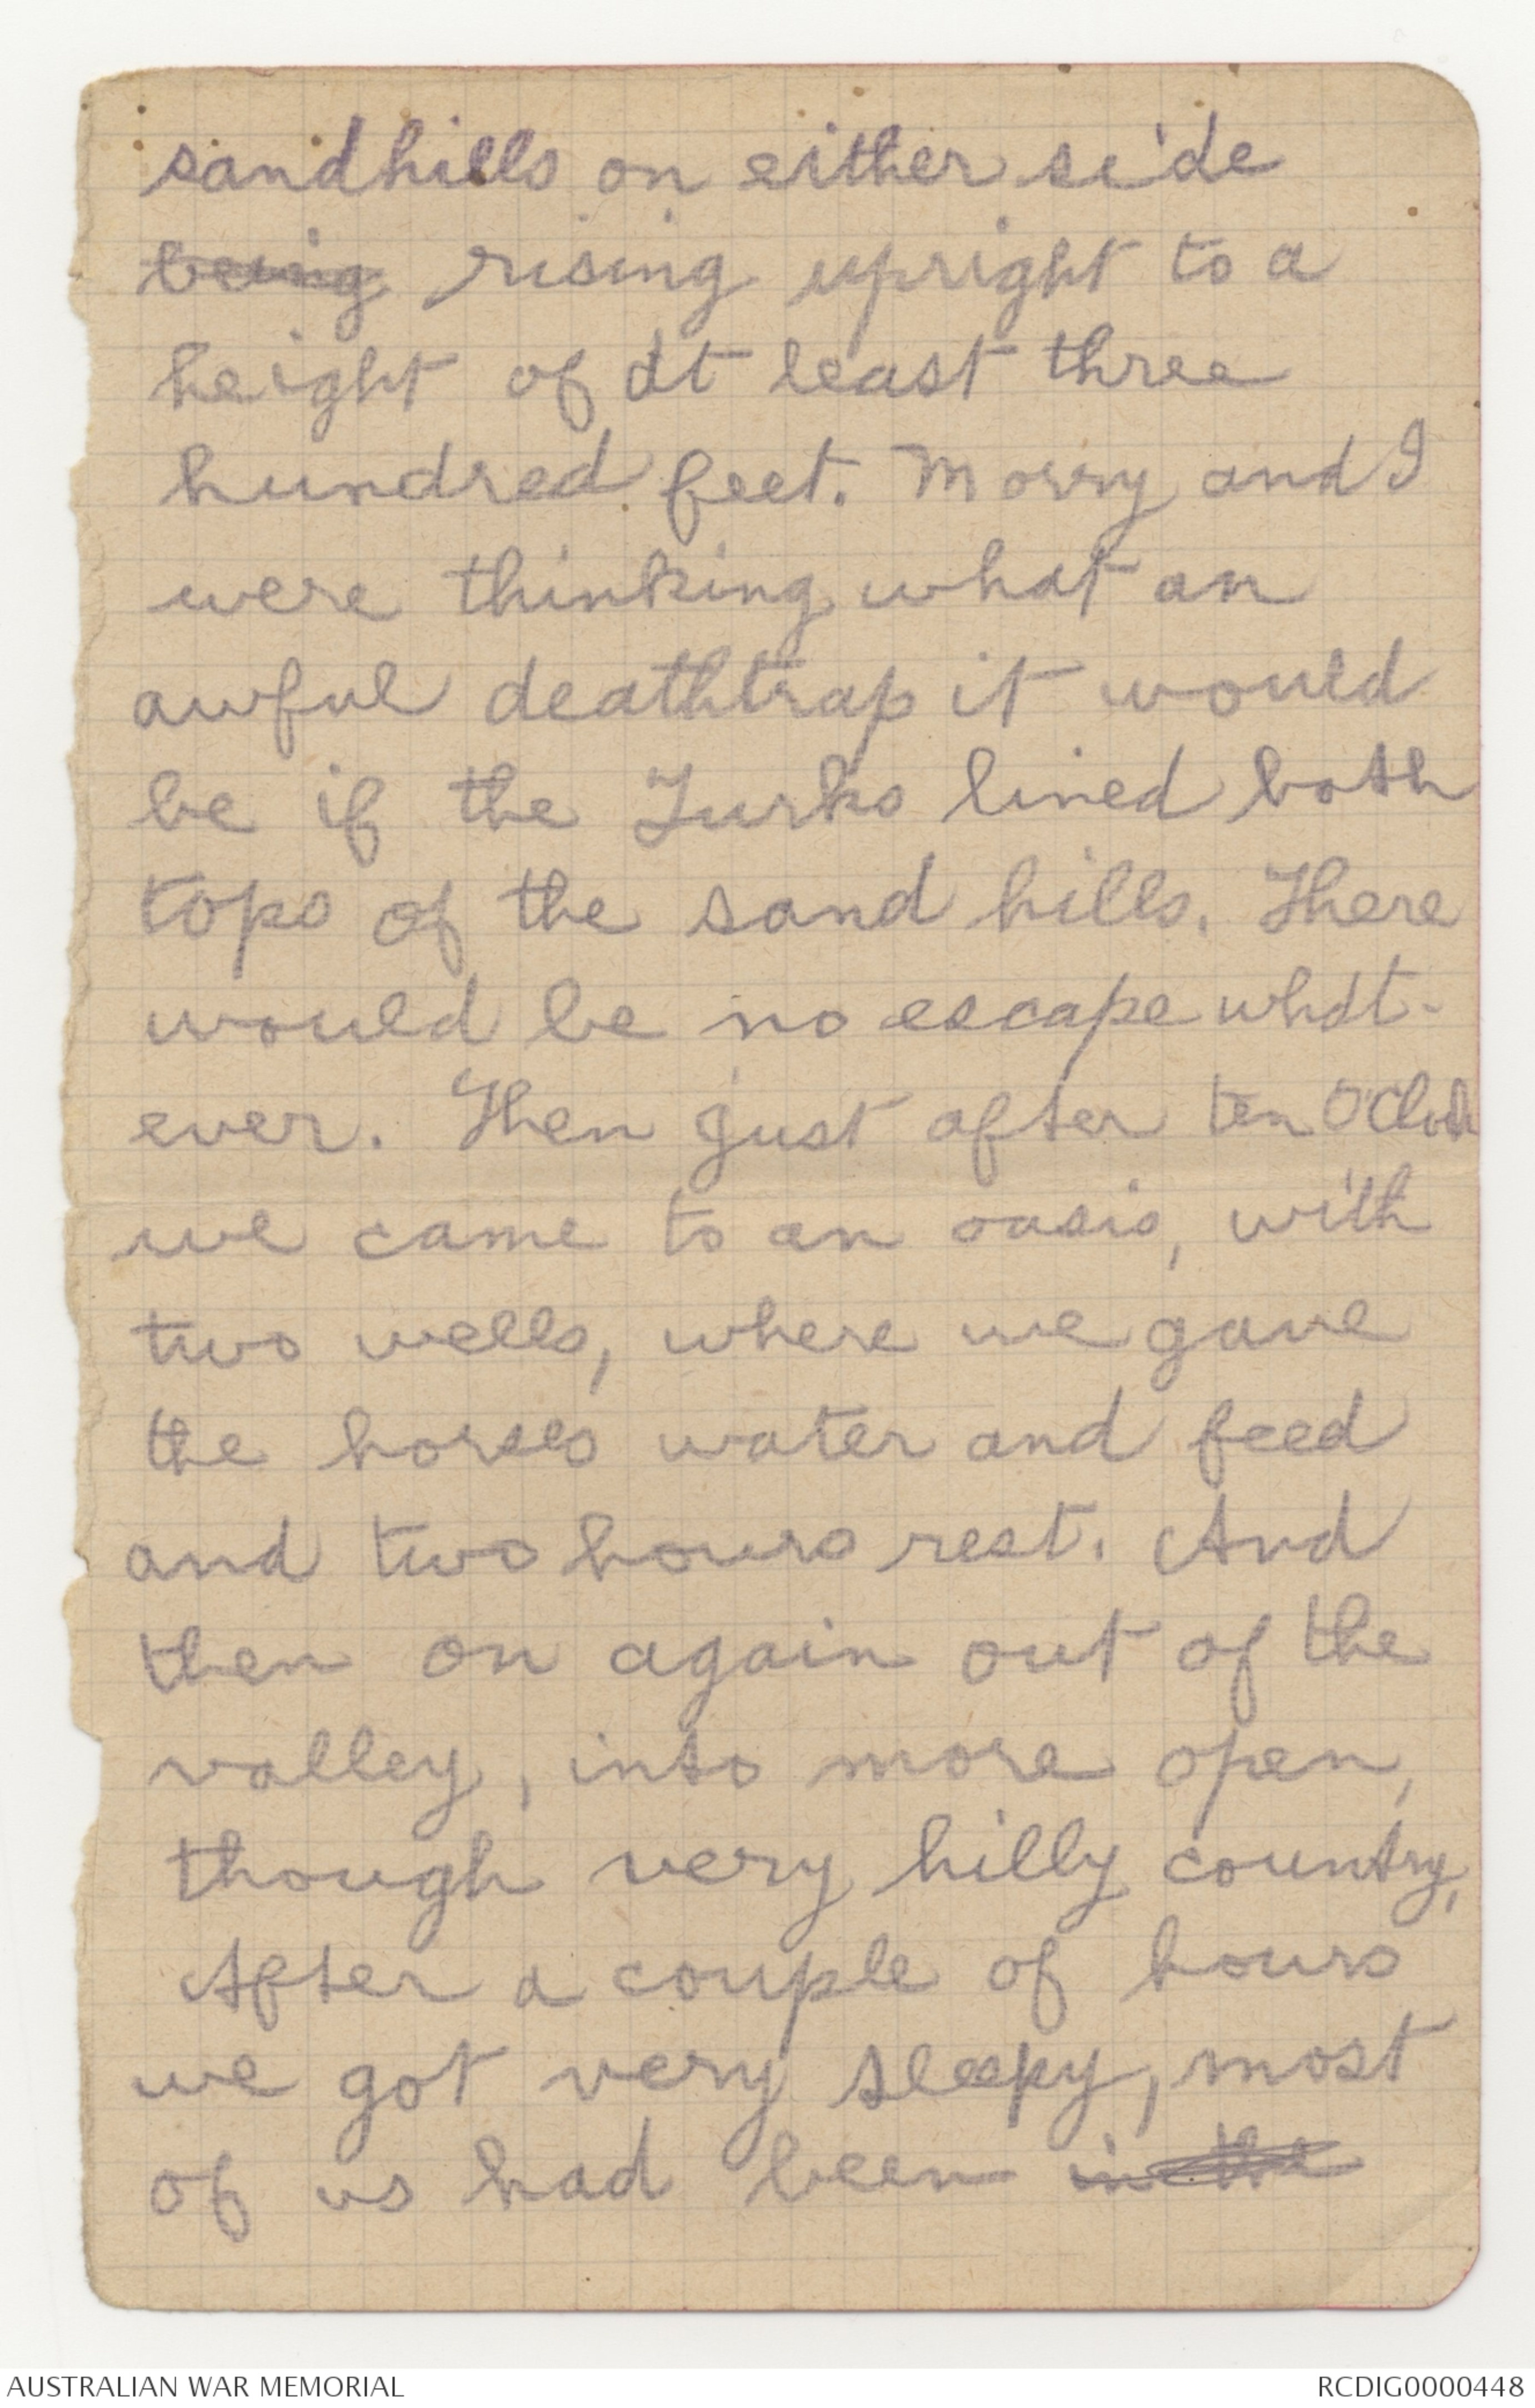 sandhills on either side
being rising upright to a
height of at least three
hundred feet. Morry and I
were thinking what an
awful deathtrap it would
be if the Turks lined both
tops of the sand hills. There
would be no escape what-
ever. Then just after ten O'Clock
we came to an oasis, with
two wells, where we gave
the horses water and feed
and two hours rest. And
then on again out of the
valley, into more open,
though very hilly country,
After a couple of hours
we got very sleepy, most
of us had been in the
AUSTRALIAN WAR MEMORIAL
RCDIG0000448